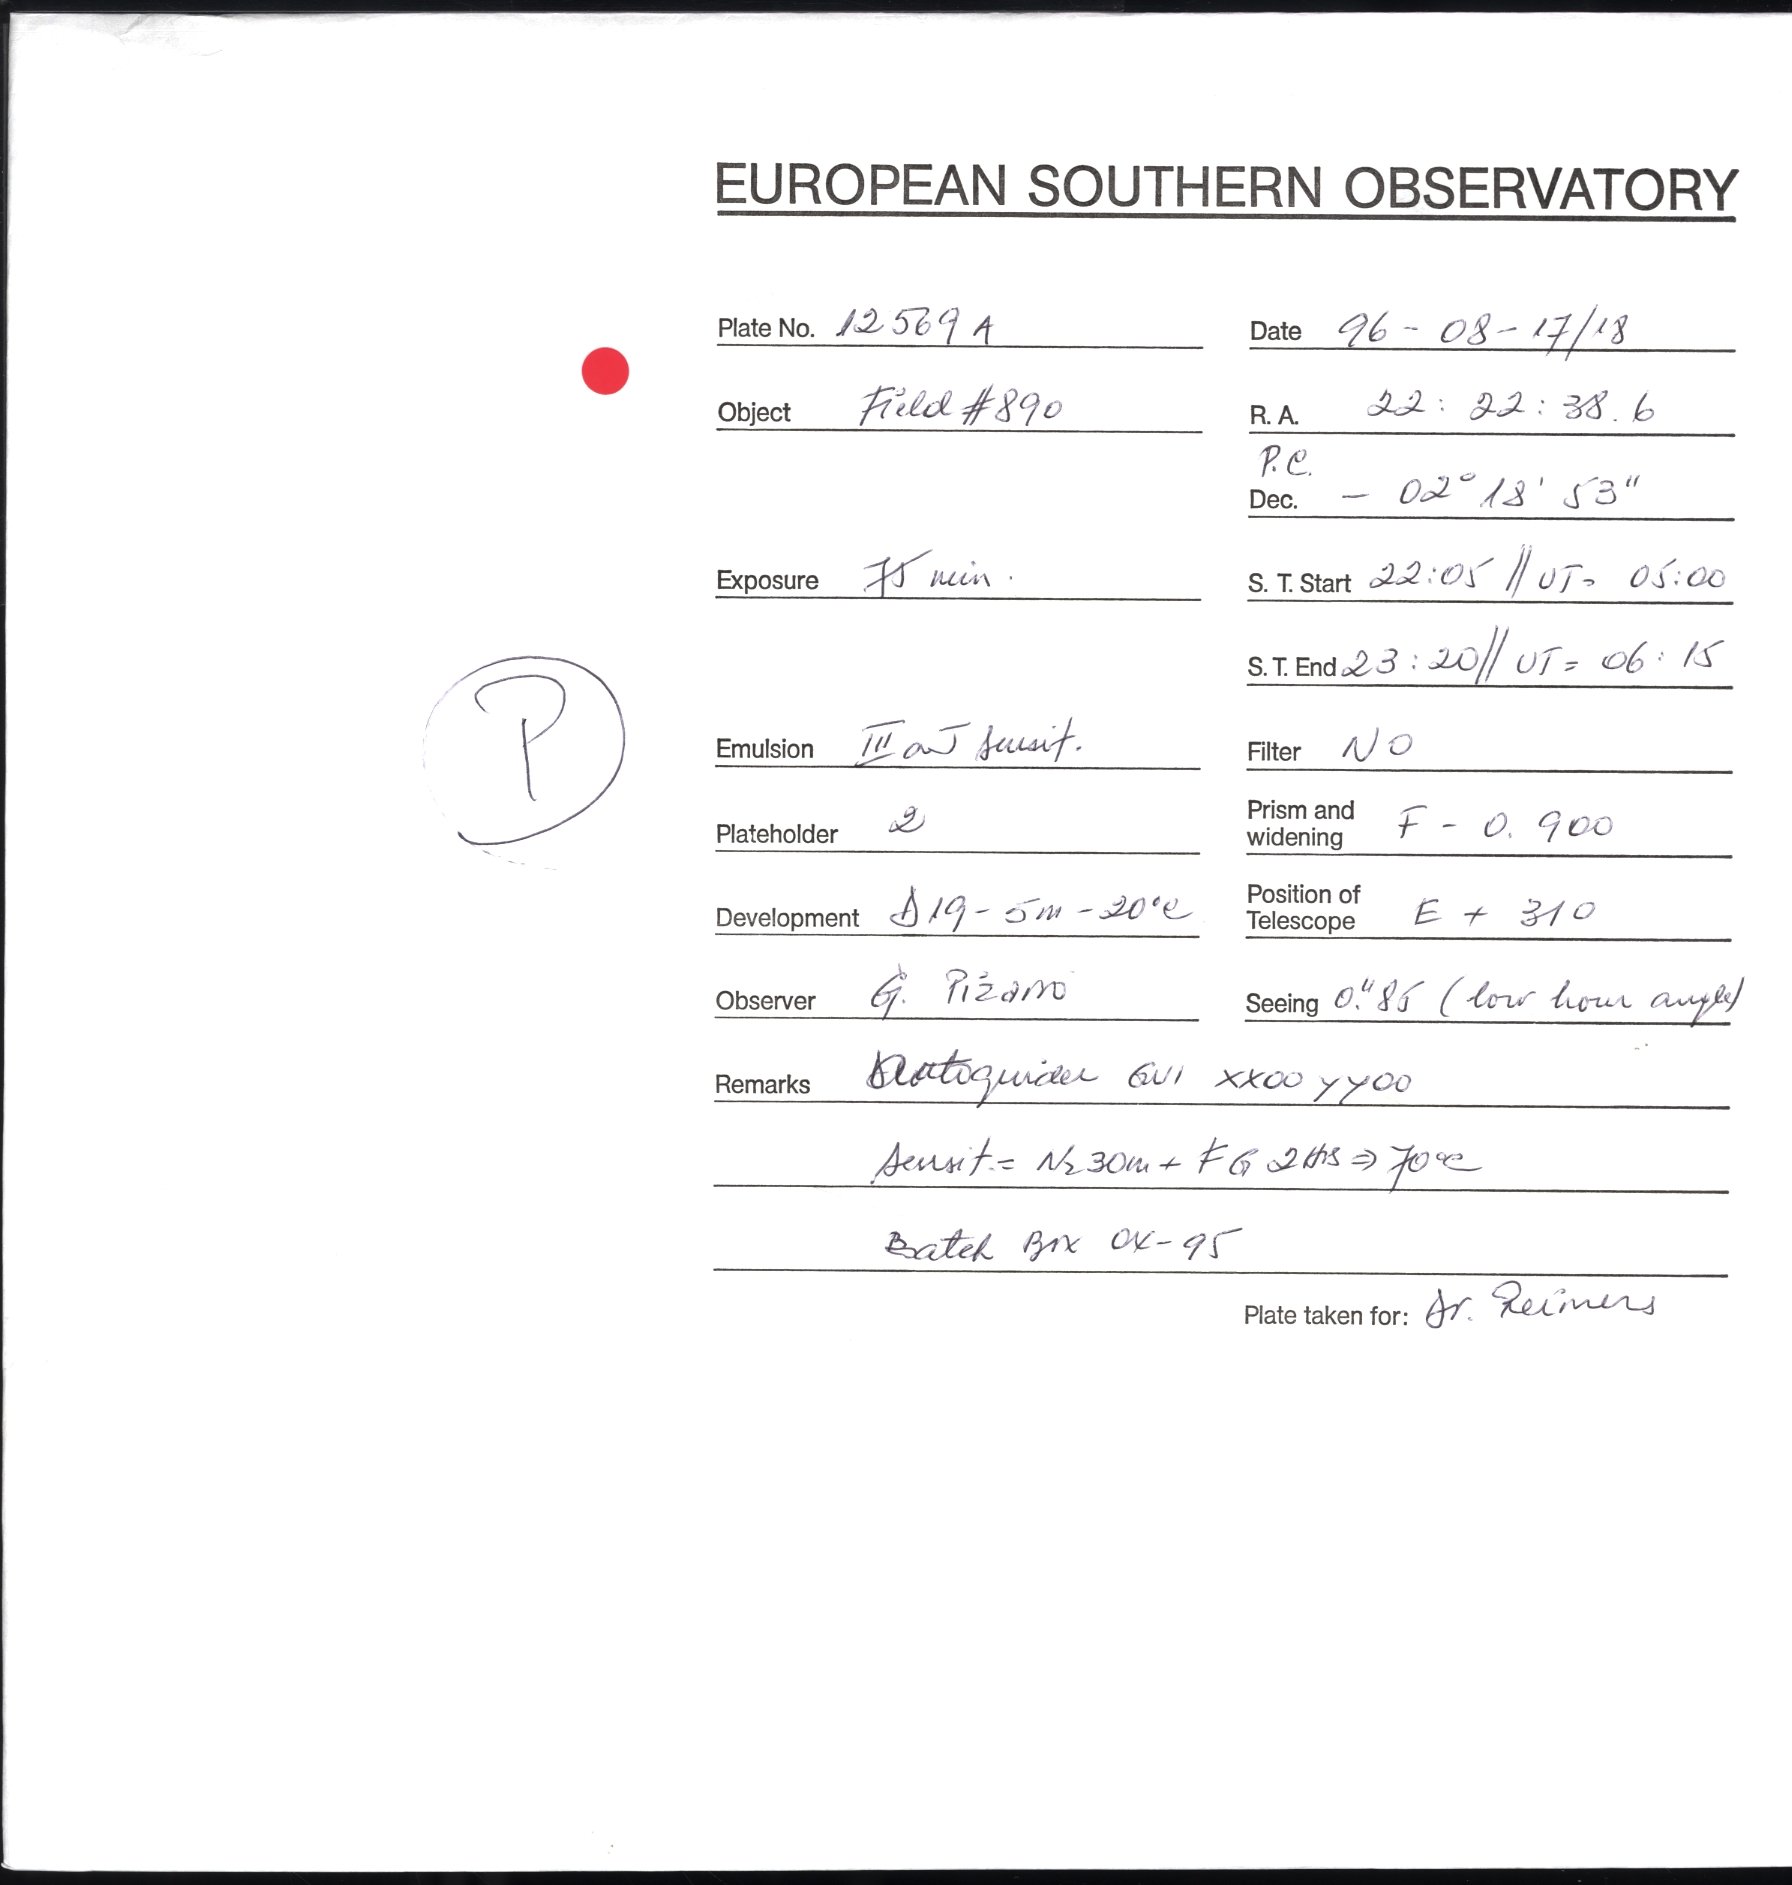 EUROPEAN SOUTHERN OBSERVATORY
Plate No. 12569 A
Date 96-08-17/18
Object Field #890
R. A. 22 : 22 : 38.6
P.C.
Dec. - 02° 18' 53"
Exposure 75 min.
S. T. Start 22:05 // UT= 05:00
S. T. End 23:20 // UT= 06:15
P
Emulsion III aJ sensit.
Filter NO
Plateholder 2
Prism and
widening F - 0.900
Development D19-5m-20°C
Position of
Telescope E + 310
Observer G. Pizarro
Seeing 0."85 (low hour angle)
Remarks Autoguider GV1 XX00 YY00
Sensit.= N2 30m + FG 2Hrs ⇒ 70°C
Batch Box 0X-95
Plate taken for: Dr. Reimers